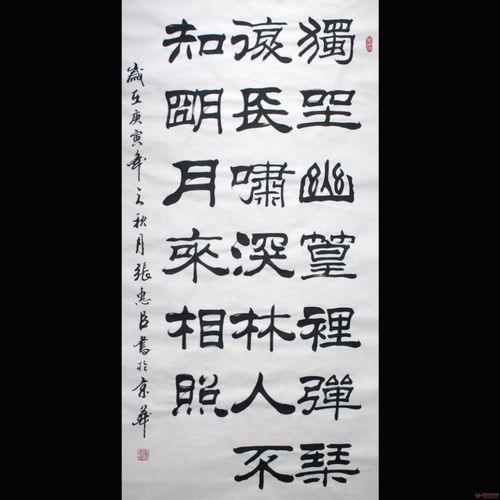 獨坐幽篁裡彈琴
復長嘯深林人不
知朙月來相照
歲在庚寅年之秋月張惠臣書於京華